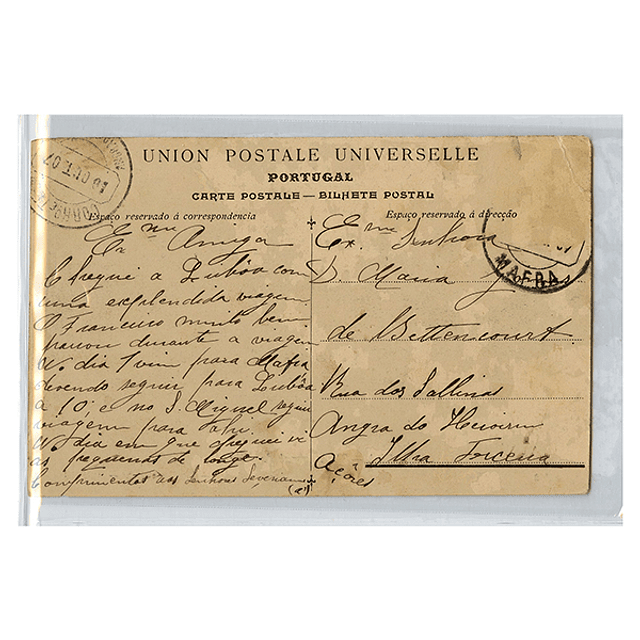 UNION POSTALE UNIVERSELLE
PORTUGAL
CARTE POSTALE — BILHETE POSTAL
Espaço reservado á correspondencia
Espaço reservado á direcção
10 OUT 07
MAFRA
Exma Amiga
Cheguei a Lisboa com
uma explendida viagem.
O Francisco muito bem
passou durante a viagem
No dia 1 vim para Mafra
devendo seguir para Lisboa
a 10; e no S. Miguel seguir
viagem para ahi.
No dia em que cheguei vi
as pequenas de longe.
Comprimentos aos Senhores
Exma Senhora
D. Maria
de Bettencourt
Rua dos
Angra do Heroismo
Ilha Terceira
Açôres